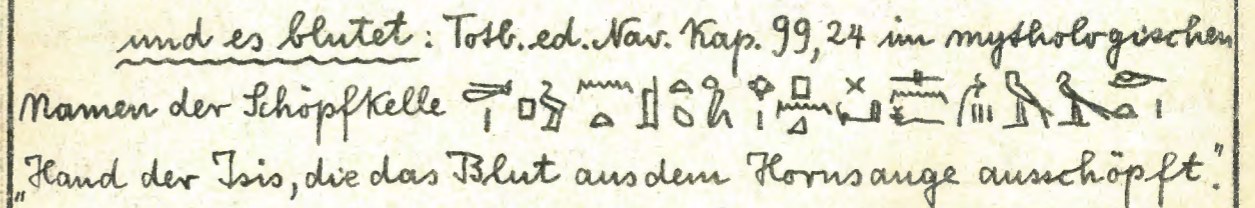 und es blutet: Totb. ed. Nav. Kap. 99,24 im mythologischen
Namen der Schöpfkelle
„Hand der Isis, die das Blut aus dem Horusauge ausschöpft."